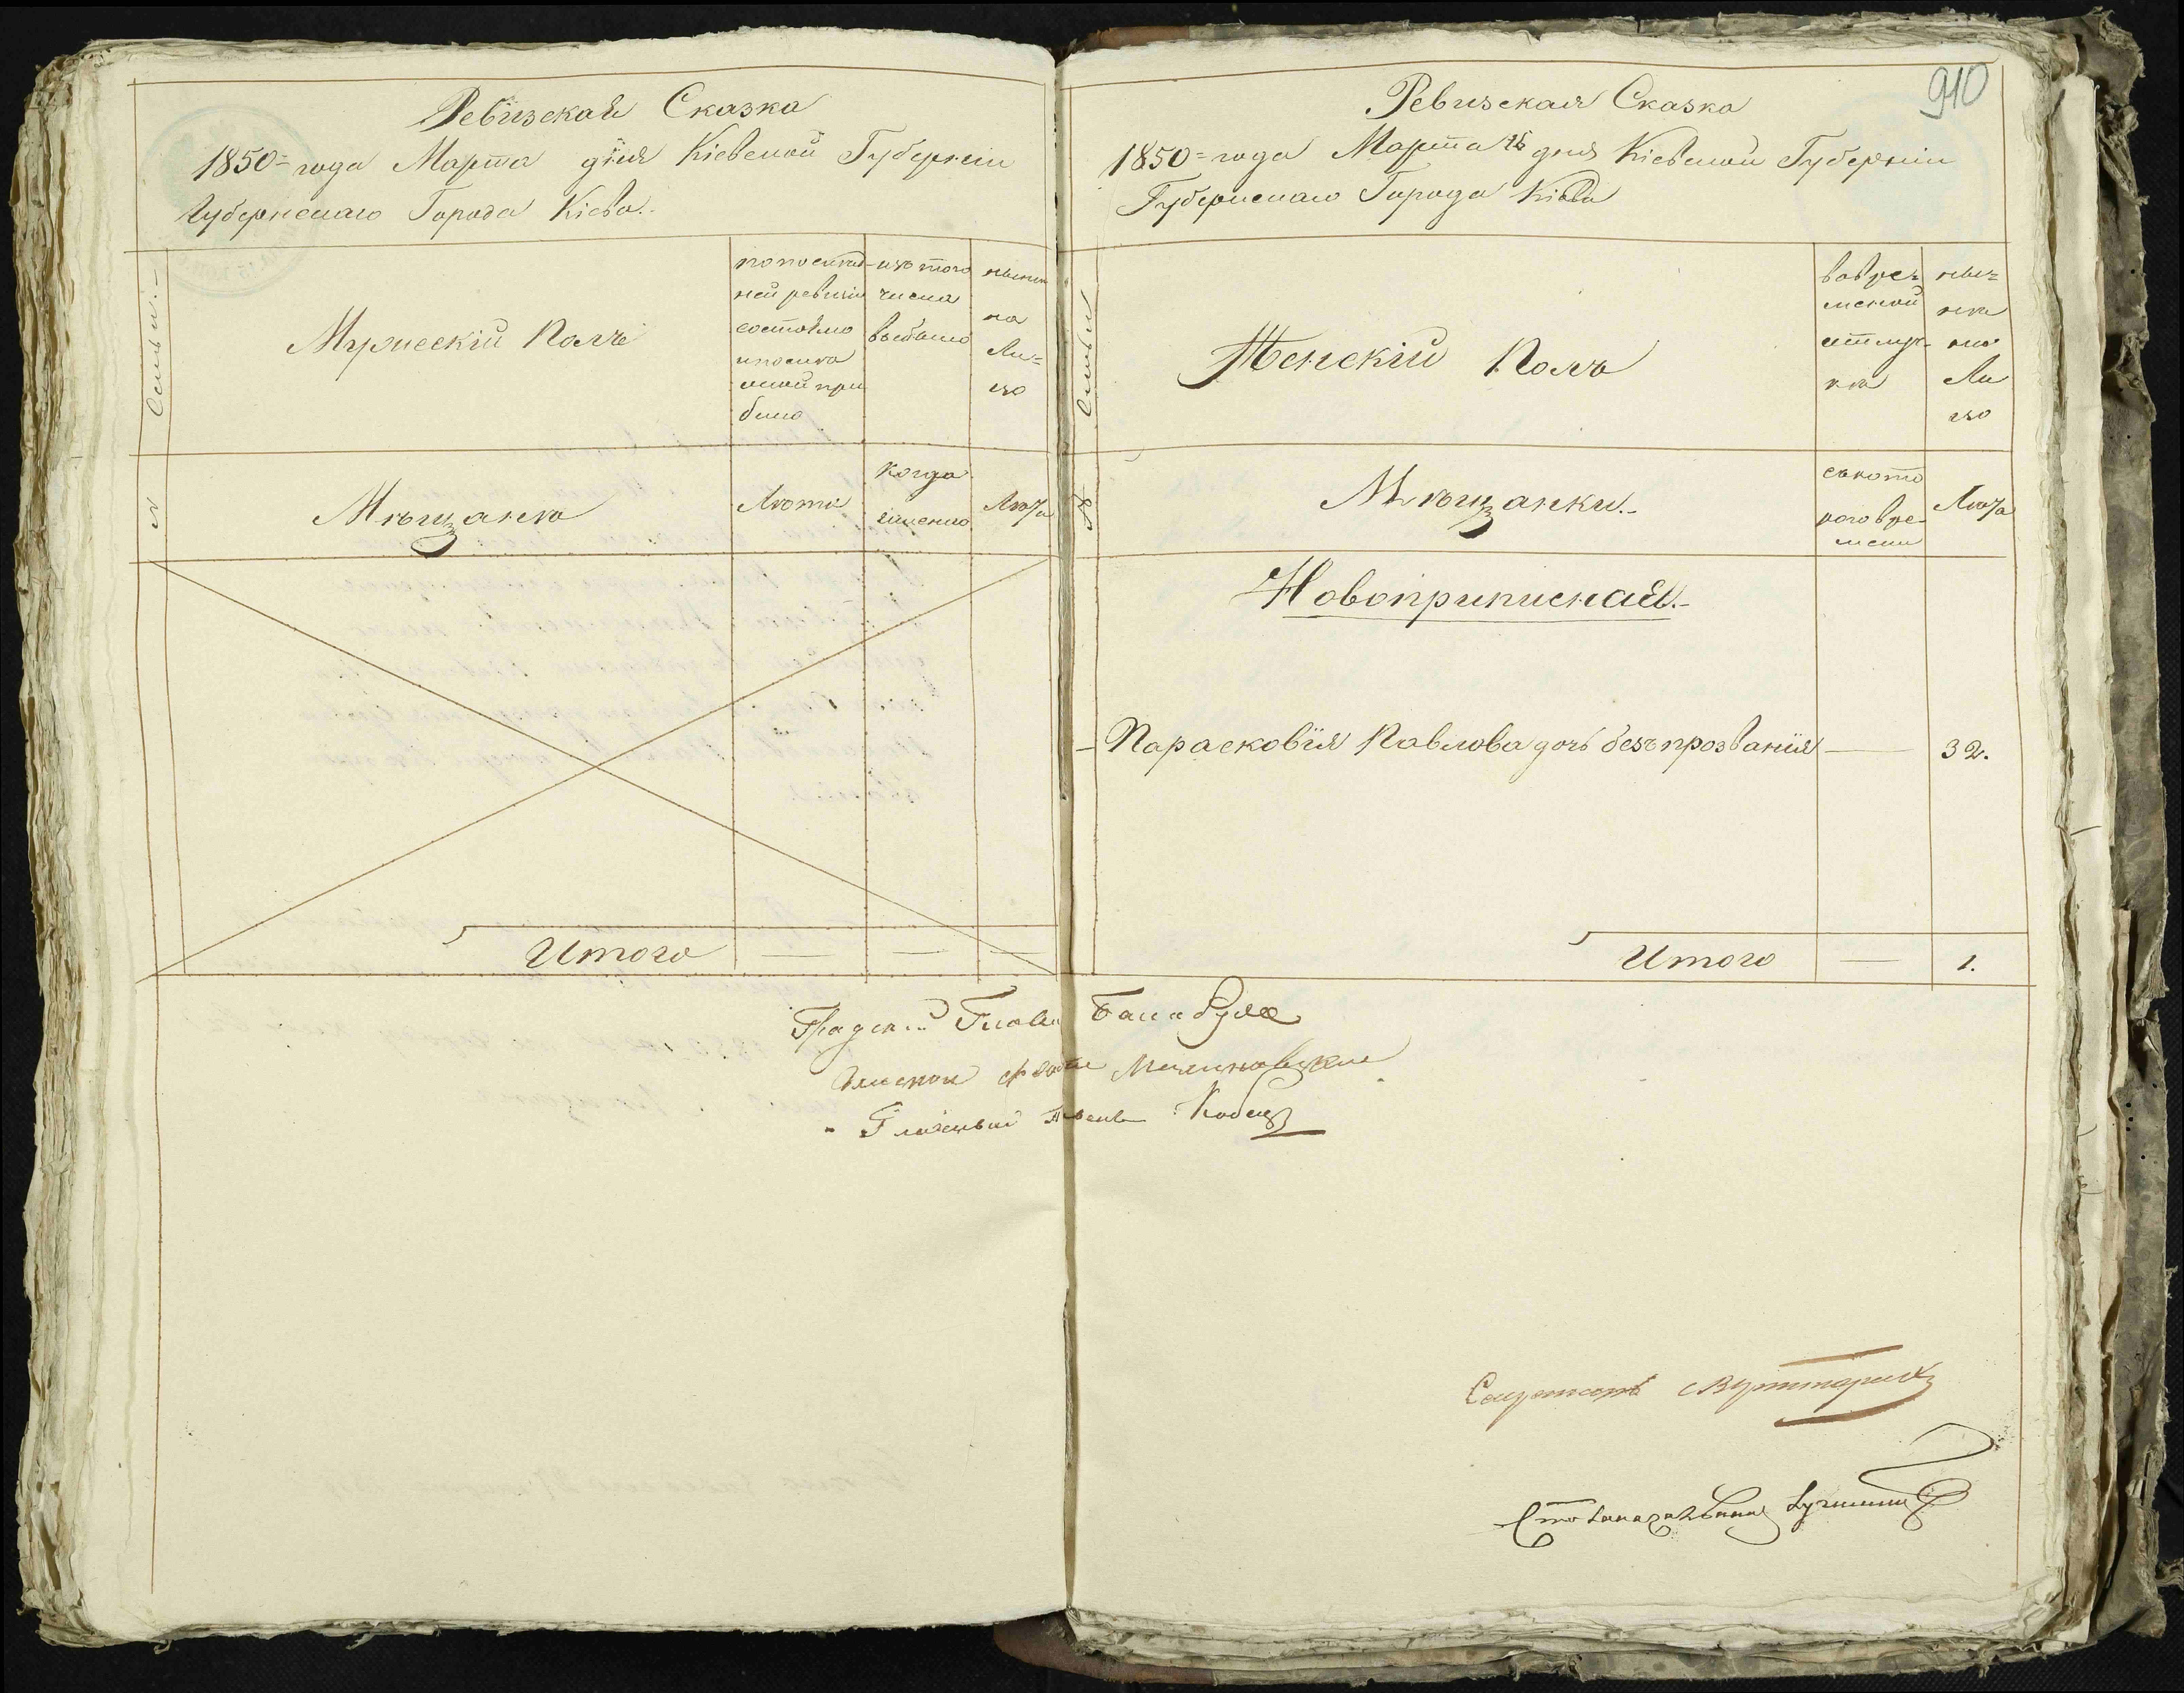 Ревизская Сказка
1850= года Марта дня Кіевской Губерніи
Губернскаго Города Кіева.
Семьи.
Мужескій Полъ
по послед-
ней ревизіи
состояло
и после
оной при
было
изъ того
числа
выбыло
ныне
на
Ли=
цо
№
Мещане
Лета
когда
именно
Лета
Итого — — —
910
Ревизская Сказка
1850= года Марта дня Кіевской Губерніи
Губернскаго Города Кіева
Семьи
Женскій Полъ
во вре=
менной
отлуч-
ке
ны=
не
на
Ли
цо
№
Мещанки.
съ кото
раго вре-
мени
Лета
Новоприписная.
— Парасковія Павлова дочь безъ прозванія — 32.
Итого — 1.
Градской Глава
Гласный Кобец
Секретарь
Столоначальникъ